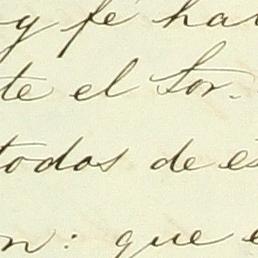 y fé ha
te el Sor.
todos de es
n: que e